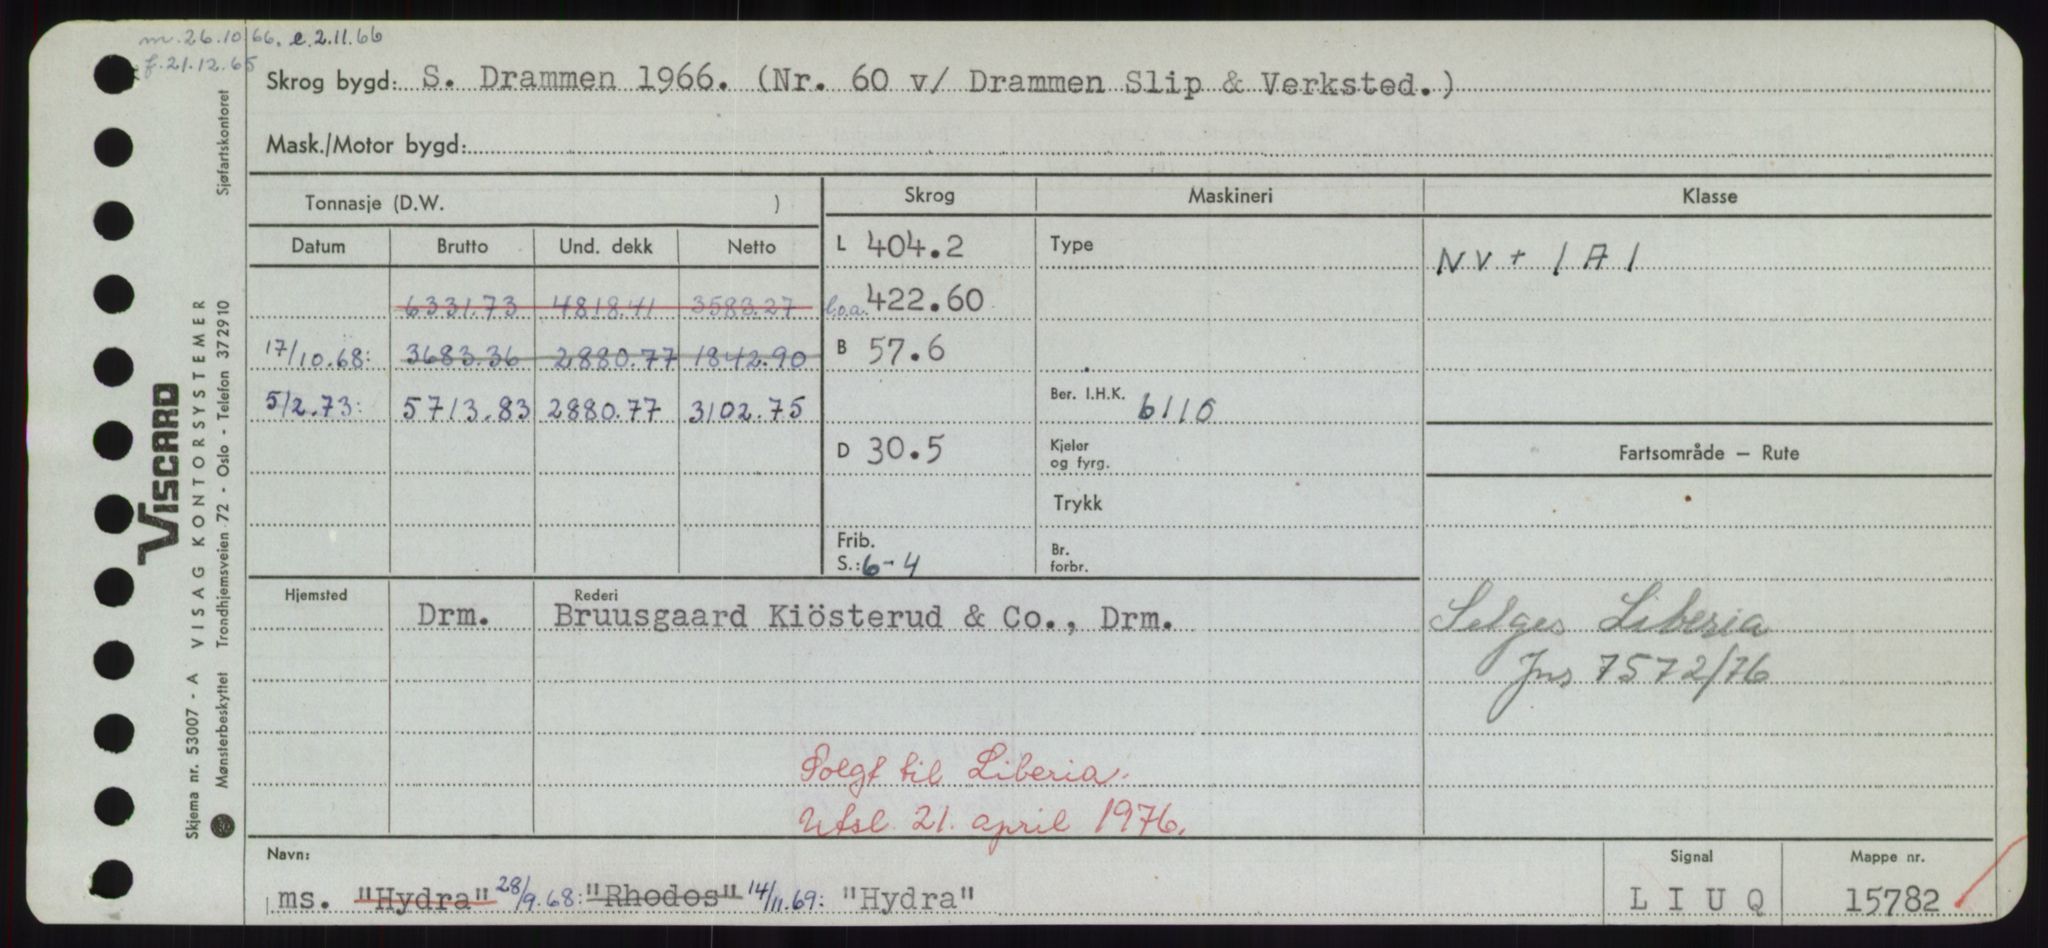 m. 26.10.66. e. 2.11.66
f. 21.12.65
Skrog bygd: S. Drammen 1966. (Nr. 60 v/ Drammen Slip & Verksted.)
Mask./Motor bygd:
Tonnasje (D.W. )
Datum Brutto Und. dekk Netto
6331.73 4818.41 3583.27
17/10.68: 3683.36 2880.77 1842.90
5/2.73: 5713.83 2880.77 3102.75
Skrog
L 404.2
l.o.a. 422.60
B 57.6
D 30.5
Frib.
S.: 6-4
Maskineri
Type
Ber. I.H.K. 6110
Kjeler
og fyrg.
Trykk
Br.
forbr.
Klasse
NV + 1A1
Fartsområde — Rute
Selges Liberia
Jns 7572/76
Hjemsted Rederi
Drm. Bruusgaard Kiösterud & Co., Drm.
Solgt til Liberia.
Utsl. 21. april 1976.
Navn: Signal Mappe nr.
ms. "Hydra" 28/9.68: "Rhodos" 14/11.69: "Hydra" L I U Q 15782
VISCARD
Skjema nr. 53007 - A VISAG KONTORSYSTEMER
Mønsterbeskyttet Trondhjemsveien 72 - Oslo - Telefon 372910 Sjøfartskontoret